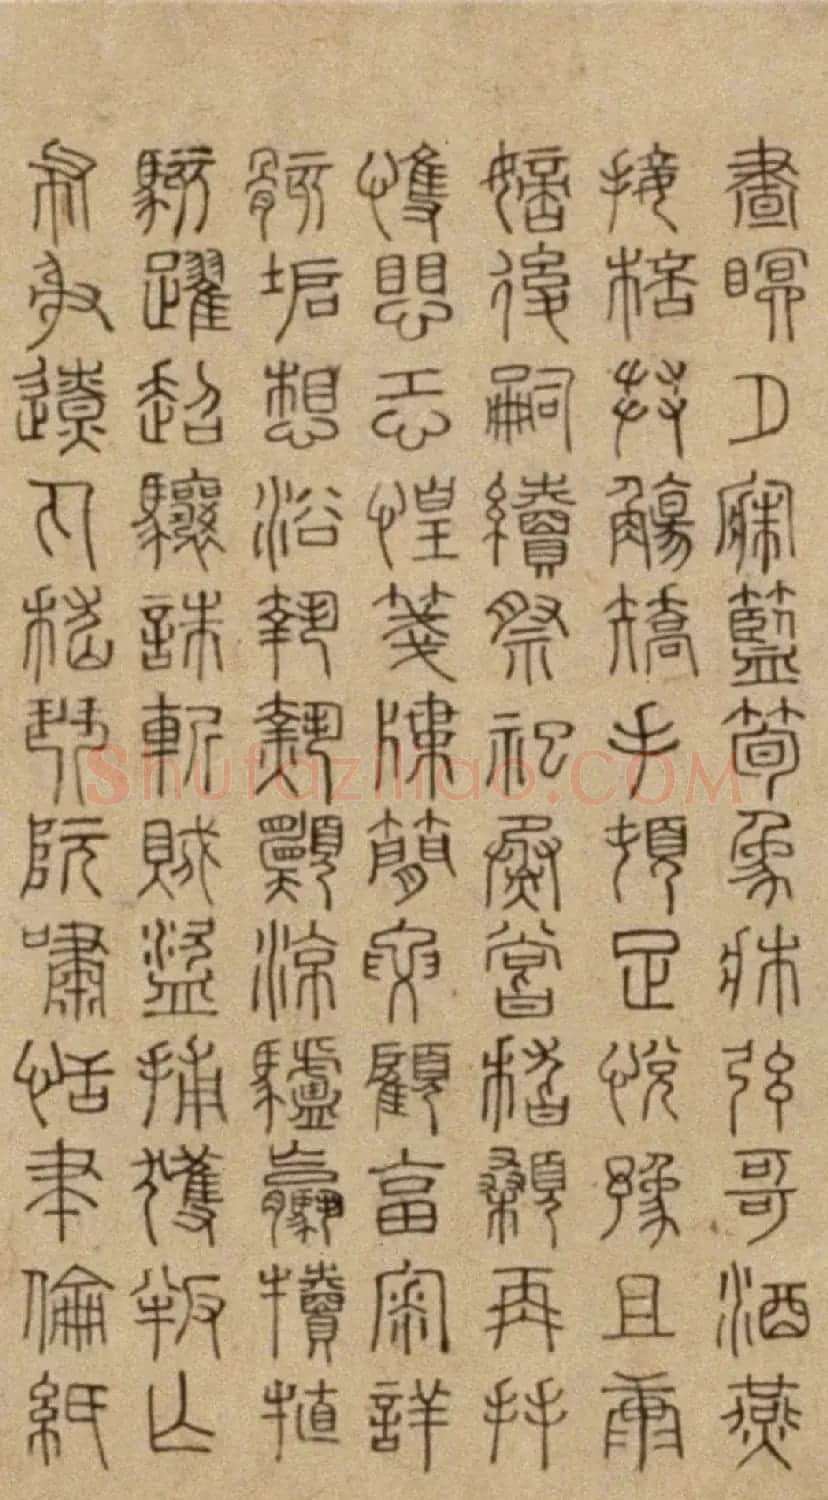 晝瞑夕寐籃筍象牀弦哥酒燕
接桮舉觴矯手頓足悅豫且康
嫡後嗣續祭祀烝嘗稽顙再拜
愯懼恐惶箋牒簡要顧畣宷詳
骸垢想浴執熱願涼驢驘犢特
駭躍超驤誅斬賊盜捕獲叛亡
布射遼丸嵇琴阮嘯恬聿倫紙
Shufaziliao.COM